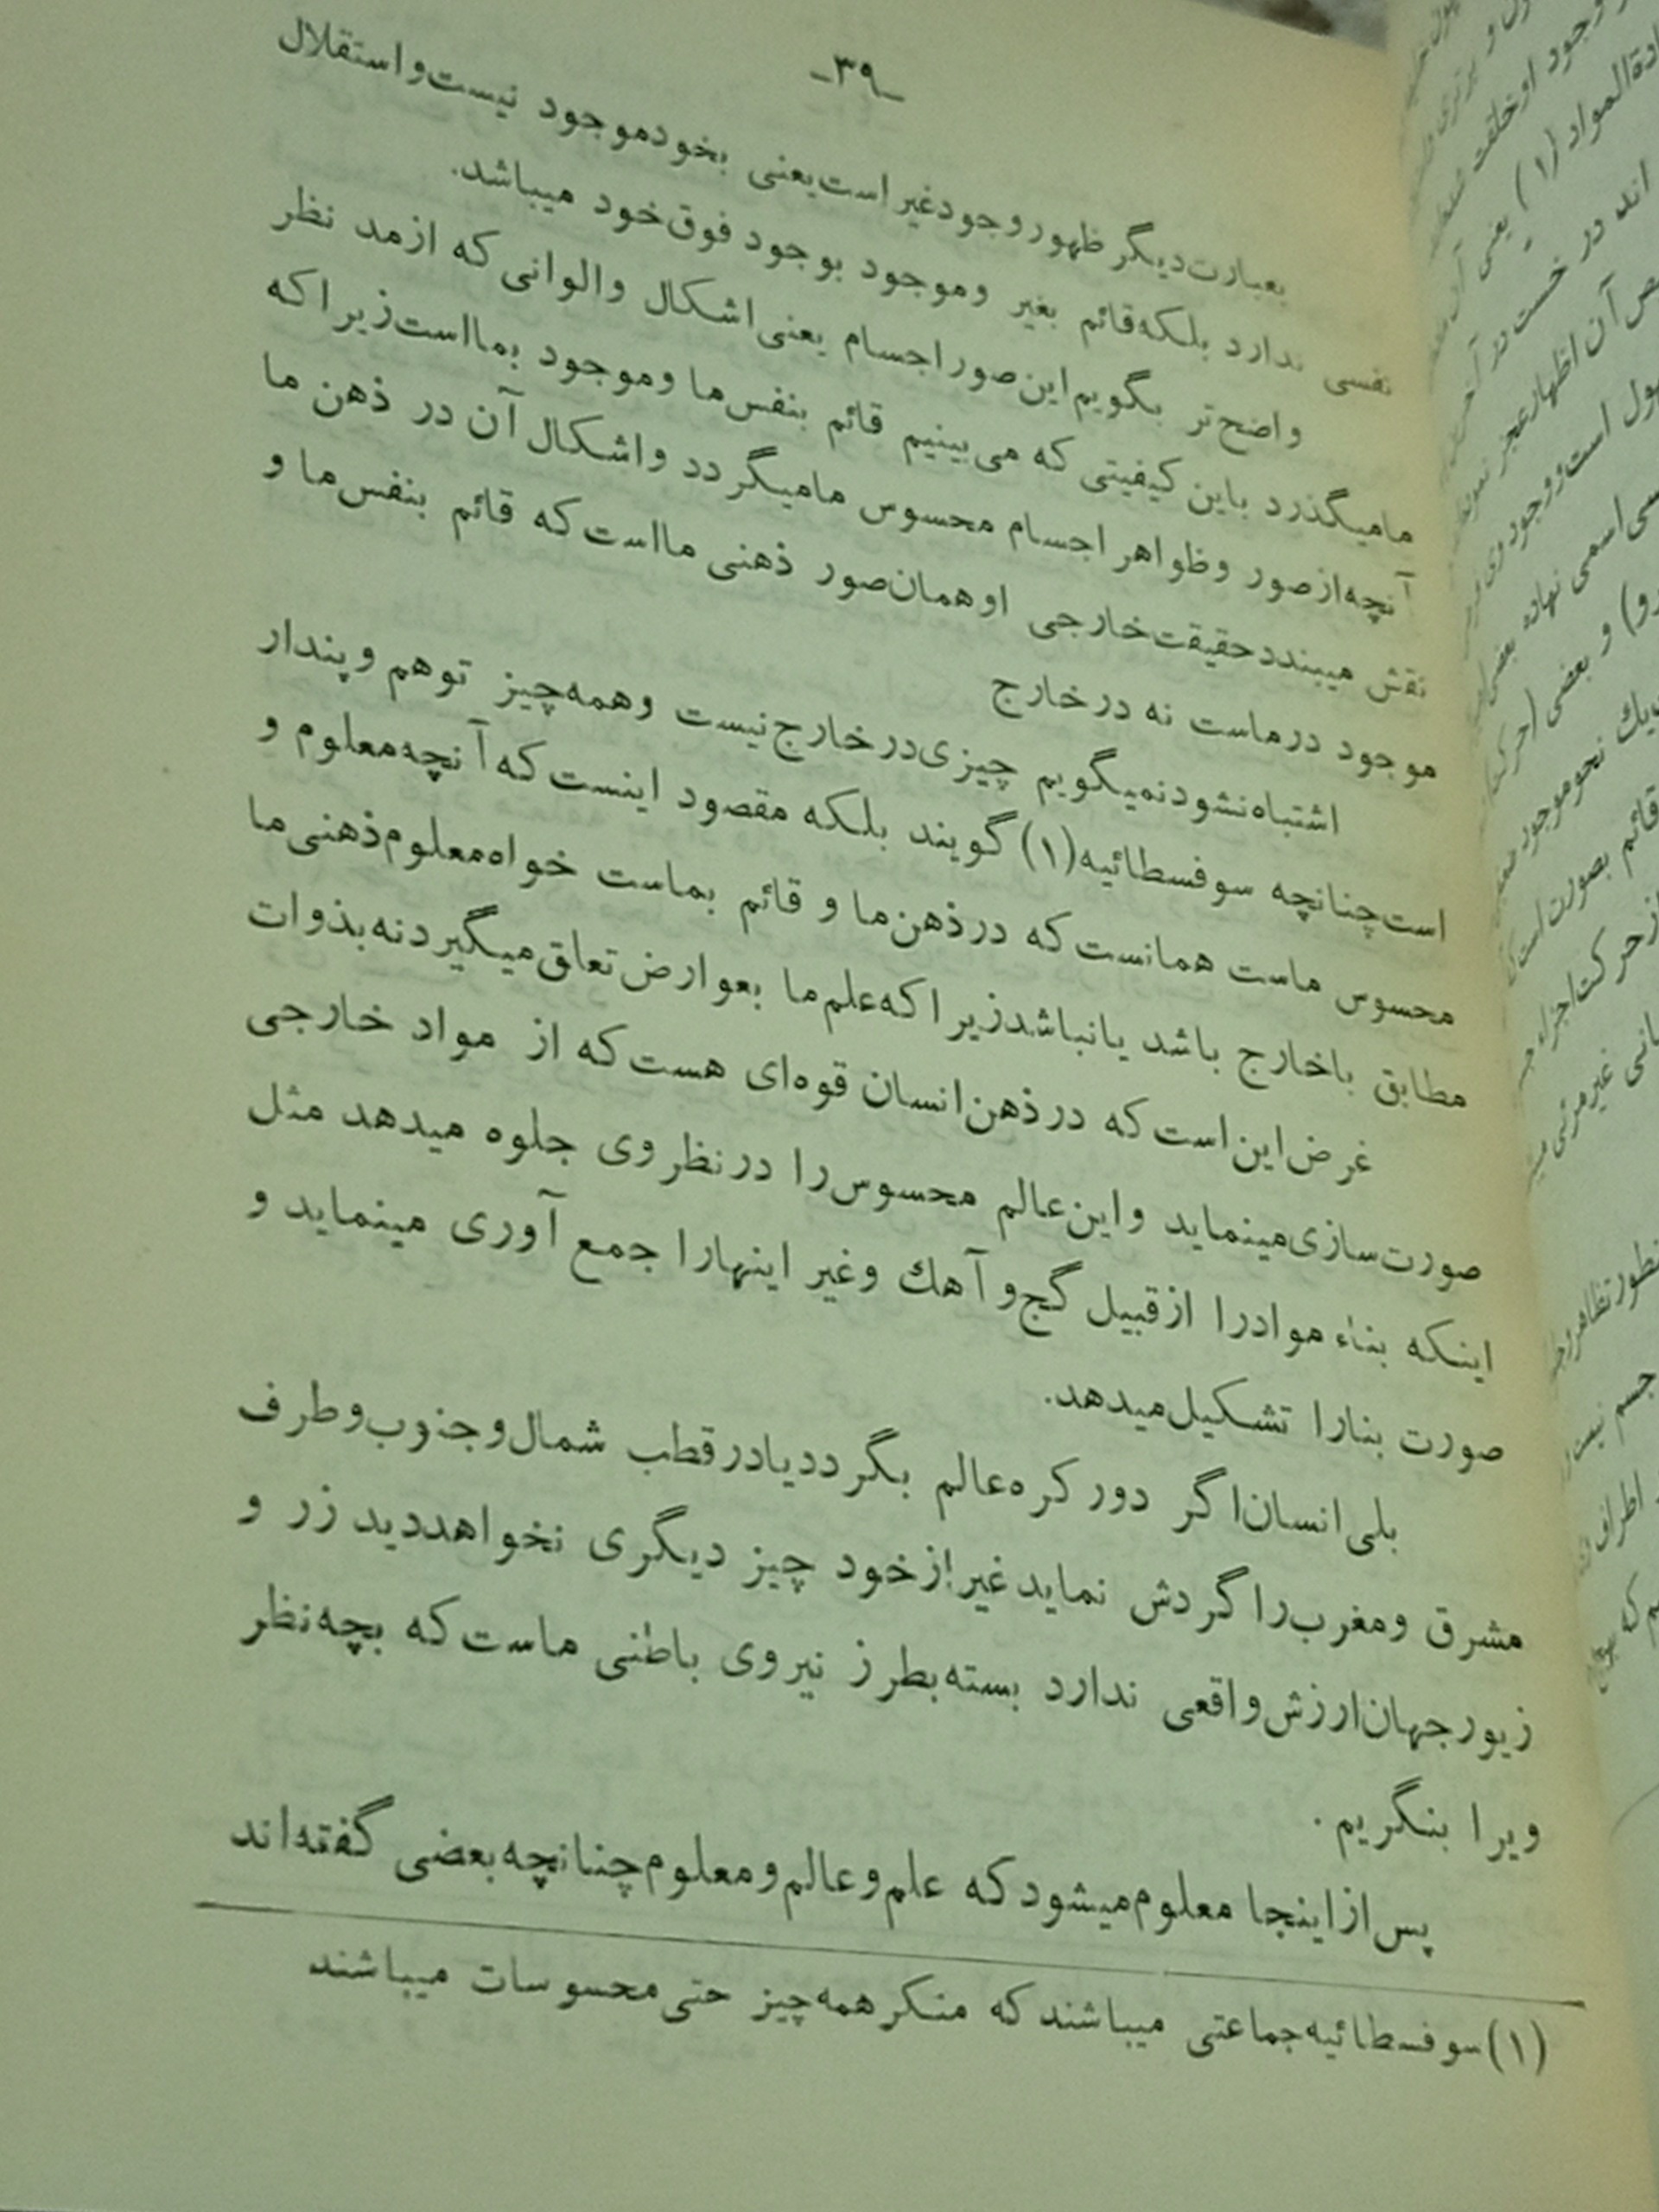 -۳۹-
بعبارت دیگر ظهور وجود غیر است یعنی بخود موجود نیست و استقلال
نفسی ندارد بلکه قائم بغیر و موجود بوجود فوق خود میباشد.
واضح تر بگویم این صور اجسام یعنی اشکال و الوانی که از مد نظر
ما میگذرد باین کیفیتی که می بینیم قائم بنفس ما و موجود بما است زیرا که
آنچه از صور و ظواهر اجسام محسوس ما میگردد و اشکال آن در ذهن ما
نقش میبندد حقیقت خارجی او همان صور ذهنی ما است که قائم بنفس ما و
موجود در ماست نه در خارج
اشتباه نشود نمیگویم چیزی در خارج نیست و همه چیز توهم و پندار
است چنانچه سوفسطائیه (۱) گویند بلکه مقصود اینست که آنچه معلوم و
محسوس ماست همانست که در ذهن ما و قائم بماست خواه معلوم ذهنی ما
مطابق با خارج باشد یا نباشد زیرا که علم ما بعوارض تعلق میگیرد نه بذوات
غرض این است که در ذهن انسان قوه ای هست که از مواد خارجی
صورت سازی مینماید و این عالم محسوس را در نظر وی جلوه میدهد مثل
اینکه بناء مواد را از قبیل گچ و آهك و غیر اینها را جمع آوری مینماید و
صورت بنا را تشکیل میدهد.
بلی انسان اگر دور کره عالم بگردد یا در قطب شمال و جنوب و طرف
مشرق و مغرب را گردش نماید غیر از خود چیز دیگری نخواهد دید زر و
زیور جهان ارزش واقعی ندارد بسته بطرز نیروی باطنی ماست که بچه نظر
ویرا بنگریم.
پس از اینجا معلوم میشود که علم و عالم و معلوم چنانچه بعضی گفته اند
(۱) سوفسطائیه جماعتی میباشند که منکر همه چیز حتی محسوسات میباشند